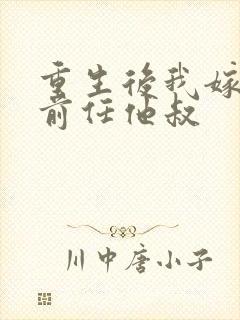 重生後我嫁
前任他叔
川中唐小子